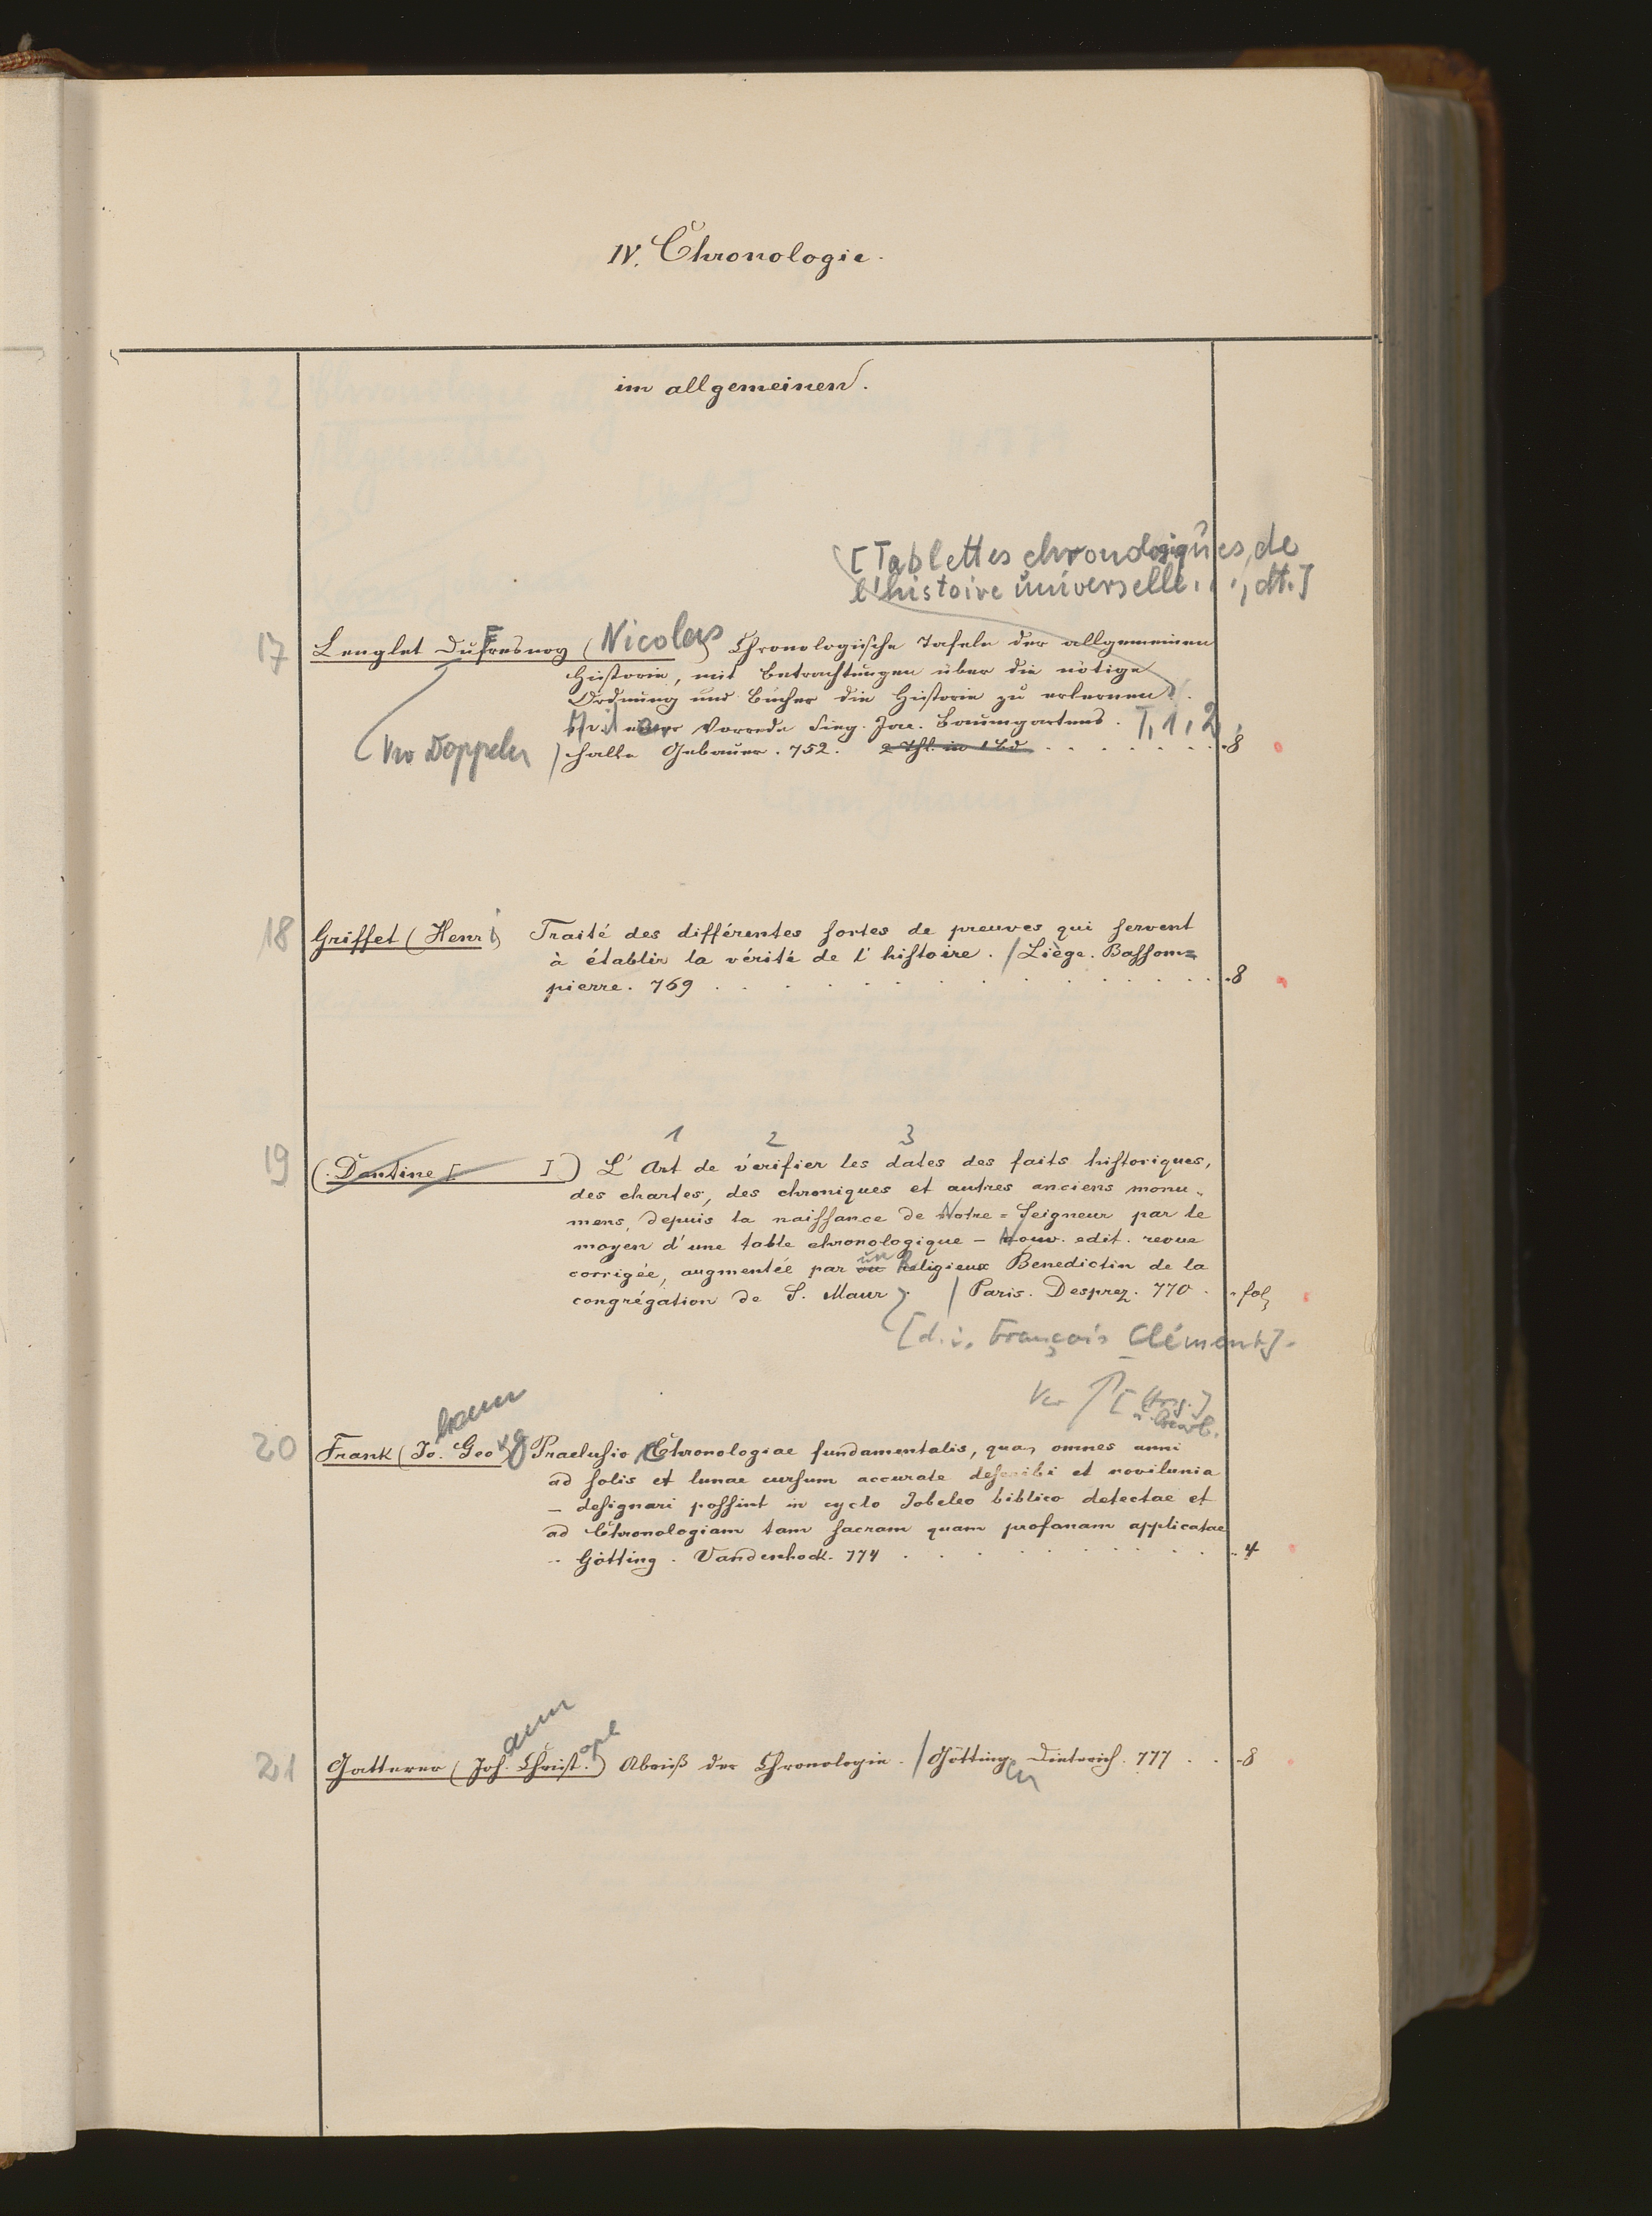 IV. Chronologie.
im allgemeinen.
[Tablettes chronologiques, de
l'histoire universelle . . ., dt.]
17 Lenglet DuFresnoy (Nicolas) Chronologische Tafeln der allgemeinen
Historie, mit Betrachtungen über die nötige
Ordnung und Bücher die Historie zu erlernen.
Mit einer Vorrede Sieg. Jac. Baumgartens. T, 1, 2,
Vw Doppeln / Halle Gebauer. 752. 2 Thl. in 1 Bd. 8
18 Griffet (Henri) Traité des différentes sortes de preuves qui servent
à établir la vérité de l'histoire. / Liège. Bassom=
pierre. 769 8
1 2 3
19 (Dantine [ ]) L'Art de vérifier les dates des faits historiques,
des chartes, des chroniques et autres anciens monu-
mens, depuis la naissance de Notre=Seigneur par le
moyen d'une table chronologique – Nouv. edit. revue
corrigée, augmentée par un Religieux Benedictin de la
congrégation de S. Maur. / Paris. Desprez. 770. fol
[d. i. François Clément].
Vw [
20 Frank (Johann Georg) Praelusio Chronologiae fundamentalis, qua omnes anni
ad solis et lunae cursum accurate describi et novilunia
– designari possint in cyclo Jobeleo biblico detectae et
ad Chronologiam tam sacram quam profanam applicatae
Götting. Vandenhock. 774 4
21 Gatterer (Johann Christoph) Abriß der Chronologie. / Göttingen Dieterich. 777 8